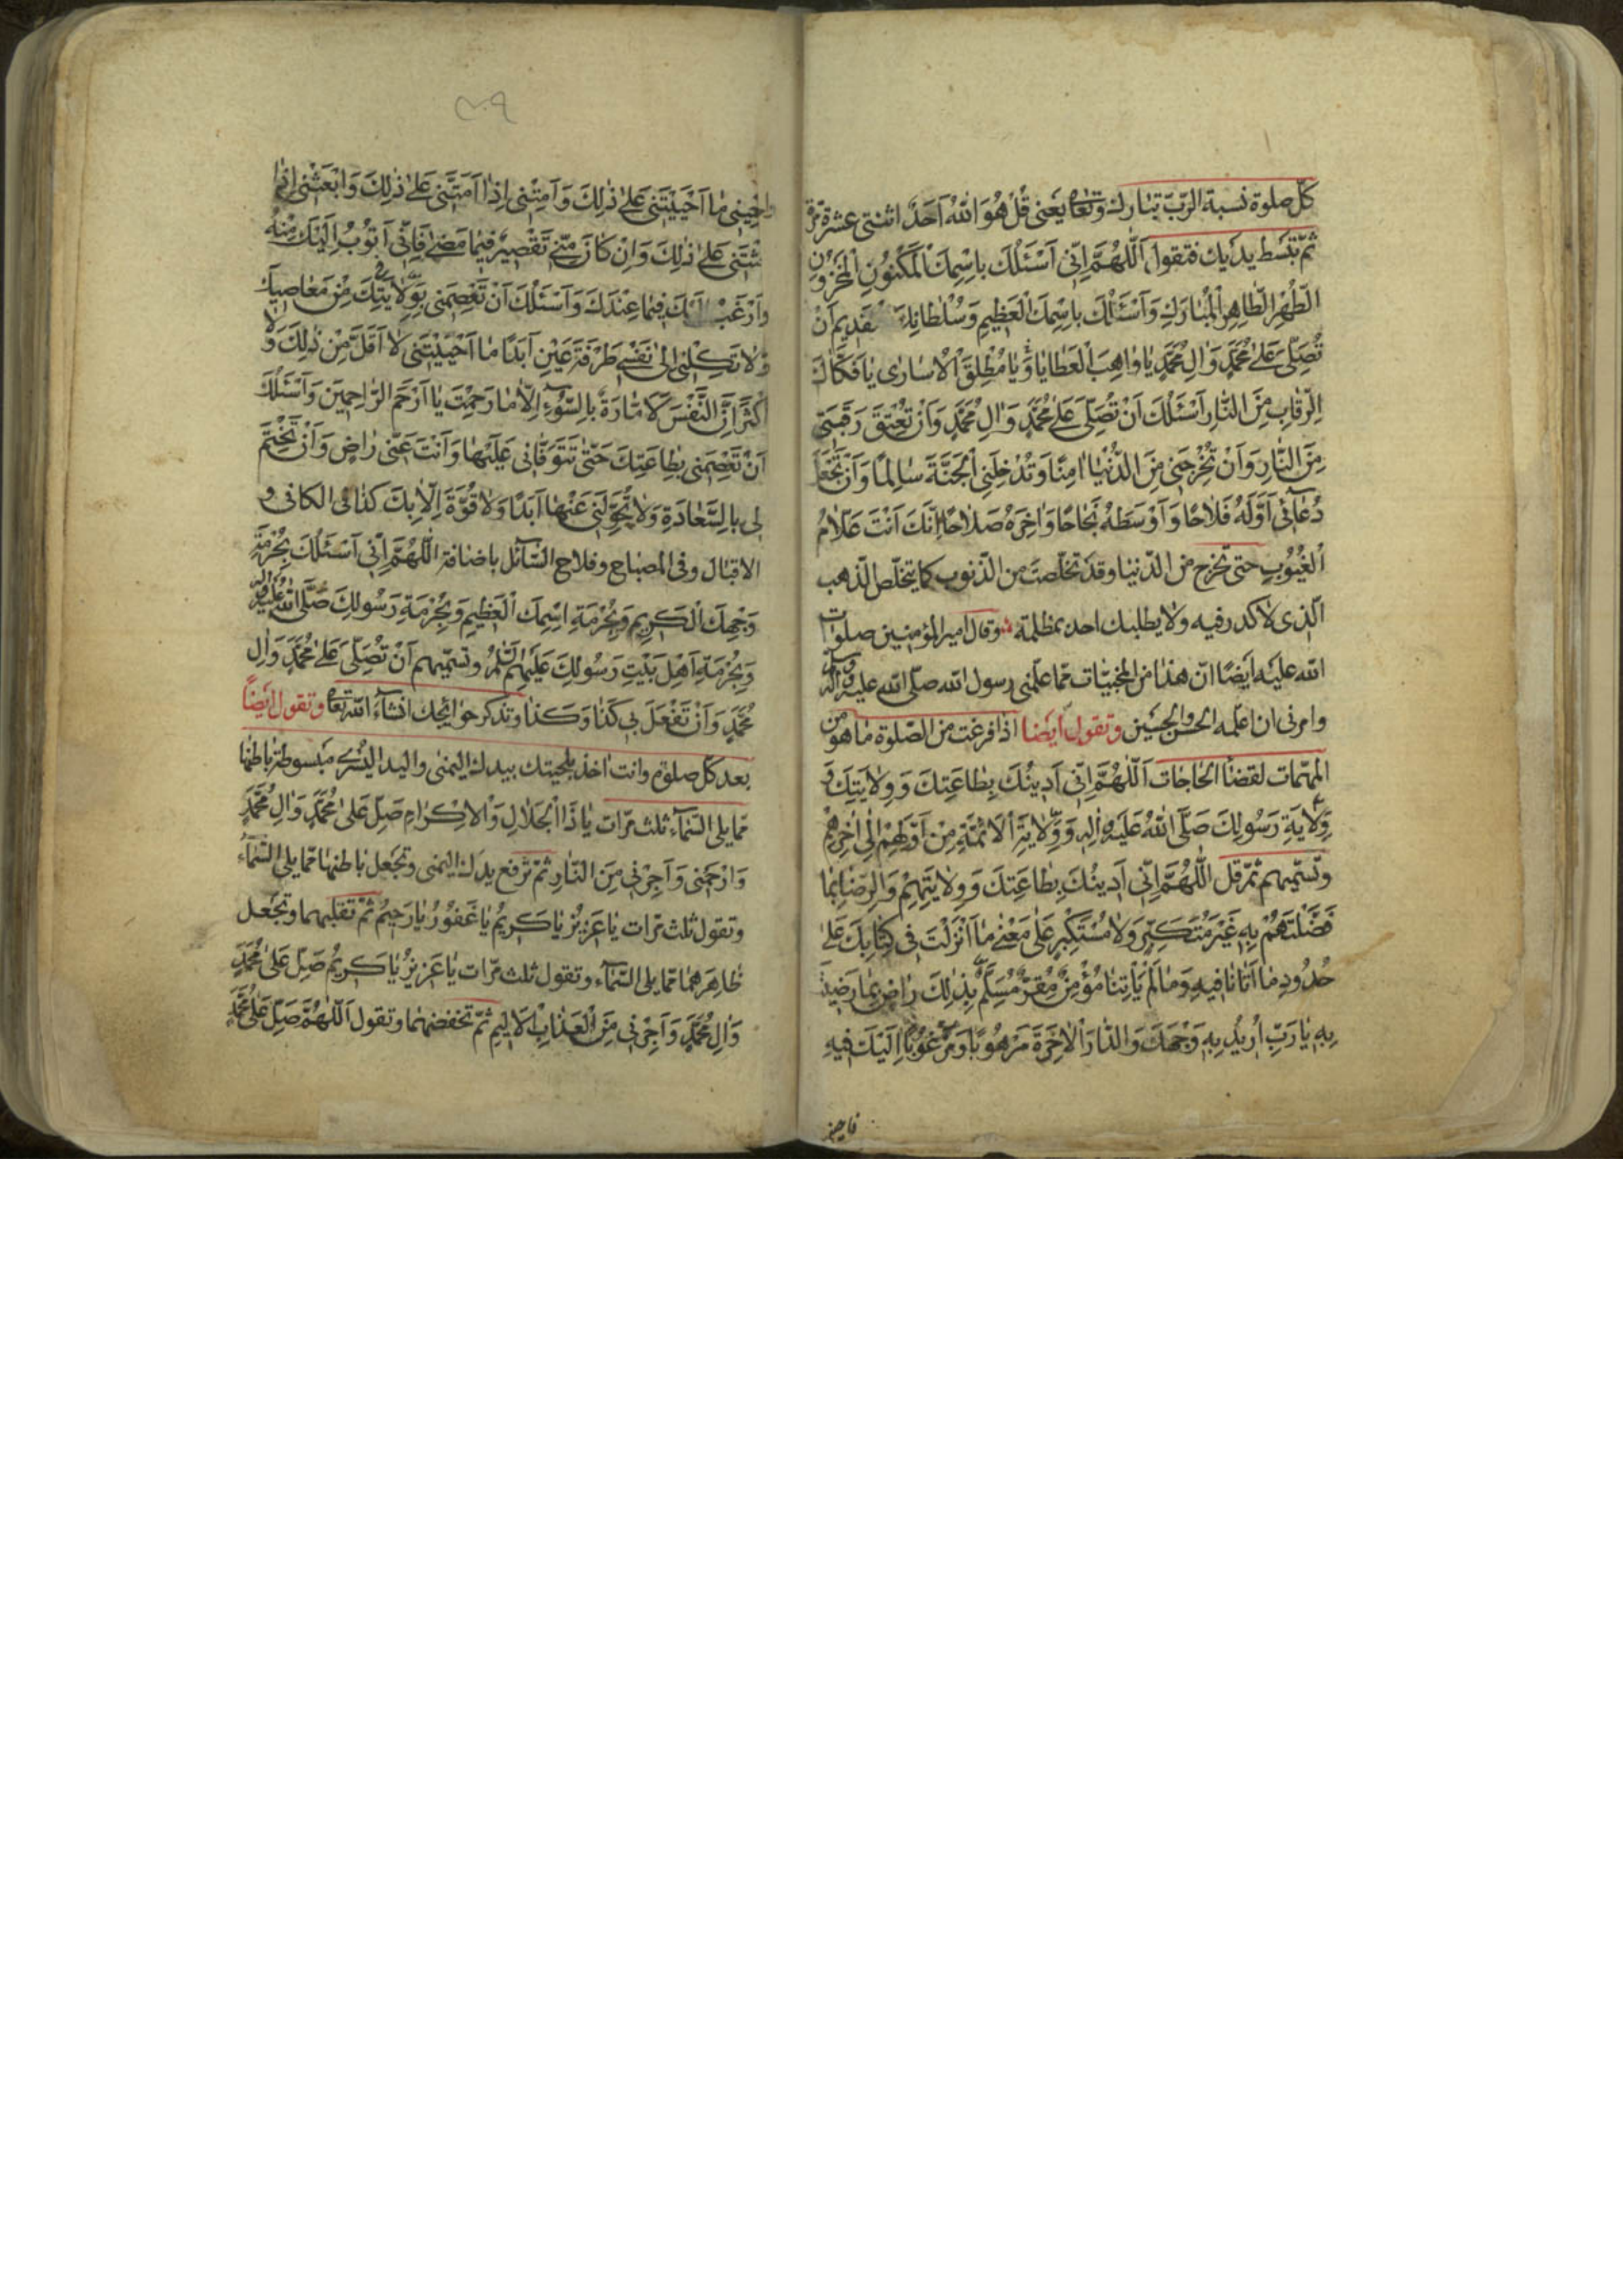 كلّ صلوة نسبة الرّبّ تبارك وتعا يعنى قُلْ هُوَ اللّٰهُ اَحَدٌ اثنتى عشرة مرّة
ثمّ تبسط يديك فتقول اَللّٰهُمَّ اِنّى اَسْئَلُكَ بِاسْمِكَ الْمَكْنُونِ الْمَخْزُونِ
الطُّهْرِ الطّاهِرِ الْمُبارَكِ وَاَسْئَلُكَ بِاسْمِكَ الْعَظيمِ وَسُلْطانِكَ الْقَديمِ اَنْ
تُصَلِّىَ عَلىٰ مُحَمَّدٍ وَالِ مُحَمَّدٍ يا واهِبَ الْعَطايا وَيا مُطْلِقَ الْاُسارى يا فَكّاكَ
الرِّقابِ مِنَ النّارِ اَسْئَلُكَ اَنْ تُصَلِّىَ عَلىٰ مُحَمَّدٍ وَالِ مُحَمَّدٍ وَاَنْ تُعْتِقَ رَقَبَتى
مِنَ النّارِ وَاَنْ تُخْرِجَنى مِنَ الدُّنْيا امِنًا وَتُدْخِلَنِى الْجَنَّةَ سالِمًا وَاَنْ تَجْعَلَ
دُعآئى اَوَّلَهُ فَلاحًا وَاَوْسَطَهُ نَجاحًا وَاخِرَهُ صَلاحًا اِنَّكَ اَنْتَ عَلّامُ
الْغُيُوبِ حتى تخرج من الدّنيا وقد تخلّصت من الذّنوب كما يتخلّص الذّهب
الّذى لا كدر فيه ولا يطلبك احد بمظلمة وقال امير المؤمنين صلوات
اللّه عليه ايضًا انّ هذا من المخبيّات ممّا علّمنى رسول اللّه صلّى اللّه عليه واله
وامرنى ان اعلّمه الحسن والحسين وتقول ايضا اذا فرغت من الصّلوة ما هو من
المهمّات لقضا الحاجات اَللّٰهُمَّ اِنّى اَدينُكَ بِطاعَتِكَ وَوِلايَتِكَ وَ
وِلايَةِ رَسُولِكَ صَلَّى اللّٰهُ عَلَيْهِ وَالِهِ وَوِلايَةِ الْاَئِمَّةِ مِنْ اَوَّلِهِمْ اِلىٰ اخِرِهِمْ
وتسمّيهم ثمّ قل اَللّٰهُمَّ اِنّى اَدينُكَ بِطاعَتِكَ وَوِلايَتِهِمْ وَالرِّضا بِما
فَضَّلْتَهُمْ بِهِ غَيْرَ مُتَكَبِّرٍ وَلا مُسْتَكْبِرٍ عَلىٰ مَعْنىٰ ما اَنْزَلْتَ فى كِتابِكَ عَلىٰ
حُدُودِ ما اَتانا فيهِ وَما لَمْ يَأْتِنا مُؤْمِنٌ مُقِرٌّ مُسَلِّمٌ بِذٰلِكَ راضٍ بِما رَضيتَ
بِهِ يا رَبِّ اُريدُ بِهِ وَجْهَكَ وَالدّارَ الْاخِرَةَ مَرْهُوبًا وَمَرْغُوبًا اِلَيْكَ فيهِ
فاحينى
٢٠٩
فاَحْيِنى ما اَحْيَيْتَنى عَلىٰ ذٰلِكَ وَاَمِتْنى اِذا اَمَتَّنى عَلىٰ ذٰلِكَ وَابْعَثْنى اِذا
بَعَثْتَنى عَلىٰ ذٰلِكَ وَاِنْ كانَ مِنّى تَقْصيرٌ فيما مَضىٰ فَاِنّى اَتُوبُ اِلَيْكَ مِنْهُ
وَاَرْغَبُ اِلَيْكَ فيما عِنْدَكَ وَاَسْئَلُكَ اَنْ تَعْصِمَنى بِوِلايَتِكَ مِنْ مَعاصيكَ
وَلا تَكِلْنى اِلىٰ نَفْسى طَرْفَةَ عَيْنٍ اَبَدًا ما اَحْيَيْتَنى لا اَقَلَّ مِنْ ذٰلِكَ وَلا
اَكْثَرَ اِنَّ النَّفْسَ لَاَمّارَةٌ بِالسُّوءِ اِلّا ما رَحِمْتَ يا اَرْحَمَ الرّاحِمينَ وَاَسْئَلُكَ
اَنْ تَعْصِمَنى بِطاعَتِكَ حَتّىٰ تَتَوَفّانى عَلَيْها وَاَنْتَ عَنّى راضٍ وَاَنْ تَخْتِمَ
لى بِالسَّعادَةِ وَلا تُحَوِّلَنى عَنْها اَبَدًا وَلا قُوَّةَ اِلّا بِكَ كذا فى الكافى و
الاقبال وفى المصباح وفلاح السّائل باضافة اَللّٰهُمَّ اِنّى اَسْئَلُكَ بِحُرْمَةِ
وَجْهِكَ الْكَريمِ وَبِحُرْمَةِ اسْمِكَ الْعَظيمِ وَبِحُرْمَةِ رَسُولِكَ صَلَّى اللّٰهُ عَلَيْهِ وَالِهِ
وَبِحُرْمَةِ اَهْلِ بَيْتِ رَسُولِكَ عَلَيْهِمُ السَّلامُ وتسمّيهم اَنْ تُصَلِّىَ عَلىٰ مُحَمَّدٍ وَالِ
مُحَمَّدٍ وَاَنْ تَفْعَلَ بى كَذا وَكَذا وتذكر حوائجك انشآء اللّه تعا وتقول ايضًا
بعد كلّ صلوة وانت اخذ بلحيتك بيدك اليمنى واليد اليسرى مبسوطة باطنها
ممّا يلى السّمآء ثلث مرّات يا ذَا الْجَلالِ وَالْاِكْرامِ صَلِّ عَلىٰ مُحَمَّدٍ وَالِ مُحَمَّدٍ
وَارْحَمْنى وَاَجِرْنى مِنَ النّارِ ثمّ ترفع يدك اليمنى وتجعل باطنها ممّا يلى السّمآء
وتقول ثلث مرّات يا عَزيزُ يا كَريمُ يا غَفُورُ يا رَحيمُ ثمّ تقلبهما وتجعل
ظاهرهما ممّا يلى السّمآء وتقول ثلث مرّات يا عَزيزُ يا كَريمُ صَلِّ عَلىٰ مُحَمَّدٍ
وَالِ مُحَمَّدٍ وَاَجِرْنى مِنَ الْعَذابِ الْاَليمِ ثمّ تخفضهما وتقول اَللّٰهُمَّ صَلِّ عَلىٰ مُحَمَّدٍ